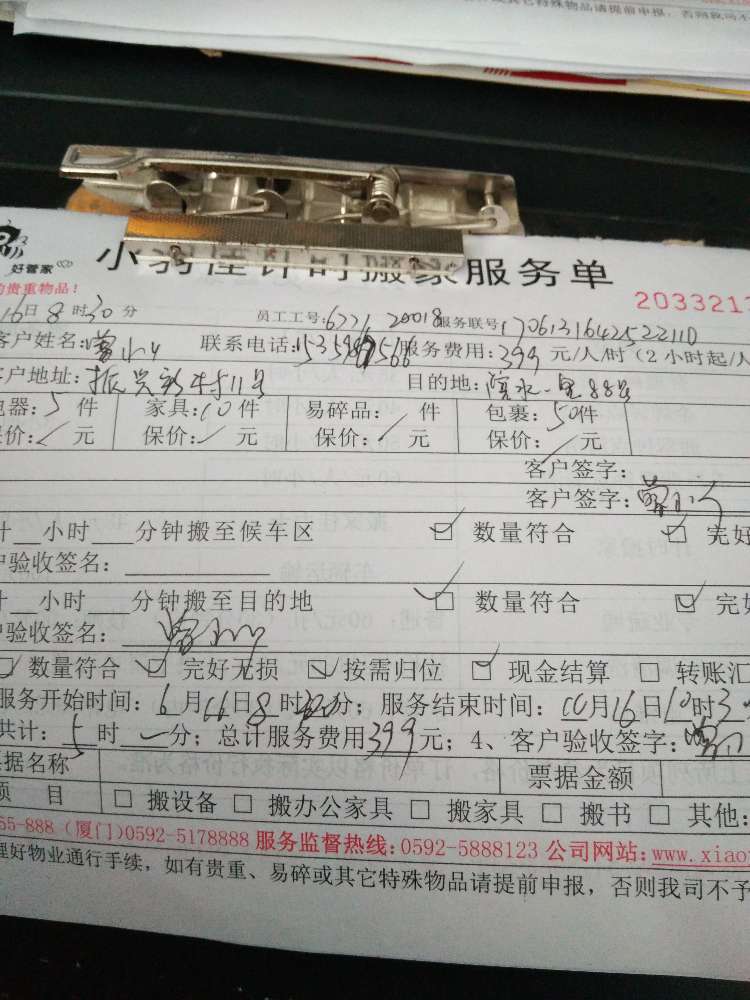 好管家
小羽佳计时搬家服务单
的贵重物品!
2033213
16日8时30分 员工工号:6221 20018 服务联号:1706131642522110
客户姓名:曾小 联系电话: 服务费用:399元/人/时(2小时起/人
客户地址:振兴新村11号 目的地: 里88号
电器:5件 家具:10件 易碎品: 件 包裹:50件
保价:/元 保价:/元 保价:/元 保价:/元
客户签字:
客户签字:曾小
计__小时__分钟搬至候车区 ☑数量符合 ☑完好
户验收签名:
计__小时__分钟搬至目的地 ☑数量符合 ☑完好
户验收签名:曾小
☑数量符合 ☑完好无损 ☑按需归位 ☑现金结算 □转账汇
服务开始时间:6月16日8时30分;服务结束时间: 月16日10时3
共计:5时一分;总计服务费用399元;4、客户验收签字:曾
票据名称 票据金额
项 目 □搬设备 □搬办公家具 □搬家具 □搬书 □其他:
55-888(厦门)0592-5178888 服务监督热线:0592-5888123 公司网站:www.xiao
理好物业通行手续,如有贵重、易碎或其它特殊物品请提前申报,否则我司不予